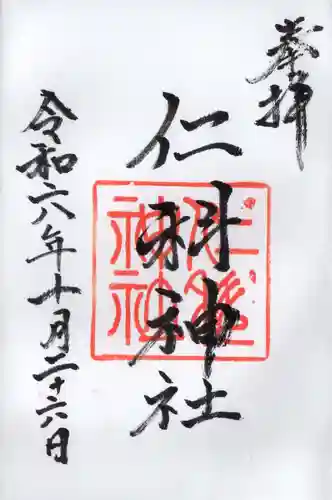 奉拝
仁科神社
令和六年十月二十六日